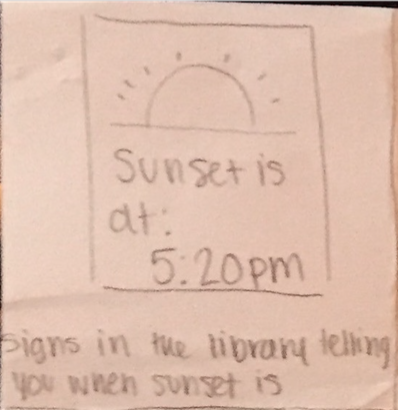 Sunset is
at:
5:20pm
Signs in the library telling
you when sunset is